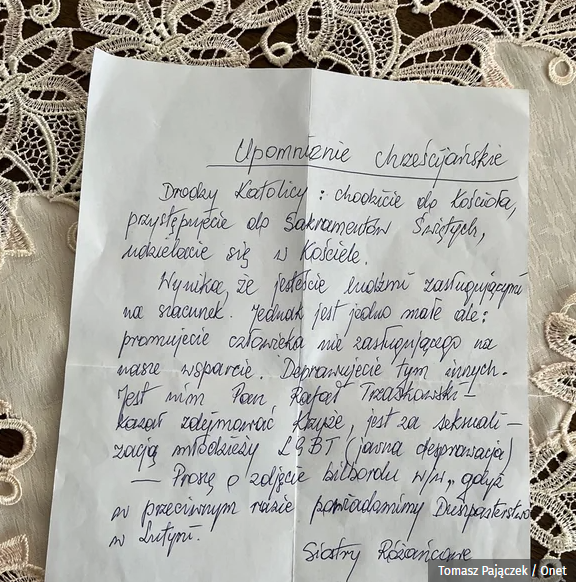 Upomnienie chrześcijańskie
Drodzy Katolicy: chodzicie do Kościoła,
przystępujecie do Sakramentów Świętych,
udzielacie się w Kościele.
Wynika, że jesteście ludźmi zasługującymi
na szacunek. Jednak jest jedno małe ale:
promujecie człowieka nie zasługującego na
nasze wsparcie. Deprawujecie tym innych.
Jest nim Pan Rafał Trzaskowski-
kazał zdejmować Krzyże, jest za seksuali-
zacją młodzieży LGBT (jawna deprawacja)
— Proszę o zdjęcie bilbordu w/w, gdyż
w przeciwnym razie powiadamimy Duszpasterstwo
w Lutyni.
Siostry Różańcowe
Tomasz Pajączek / Onet